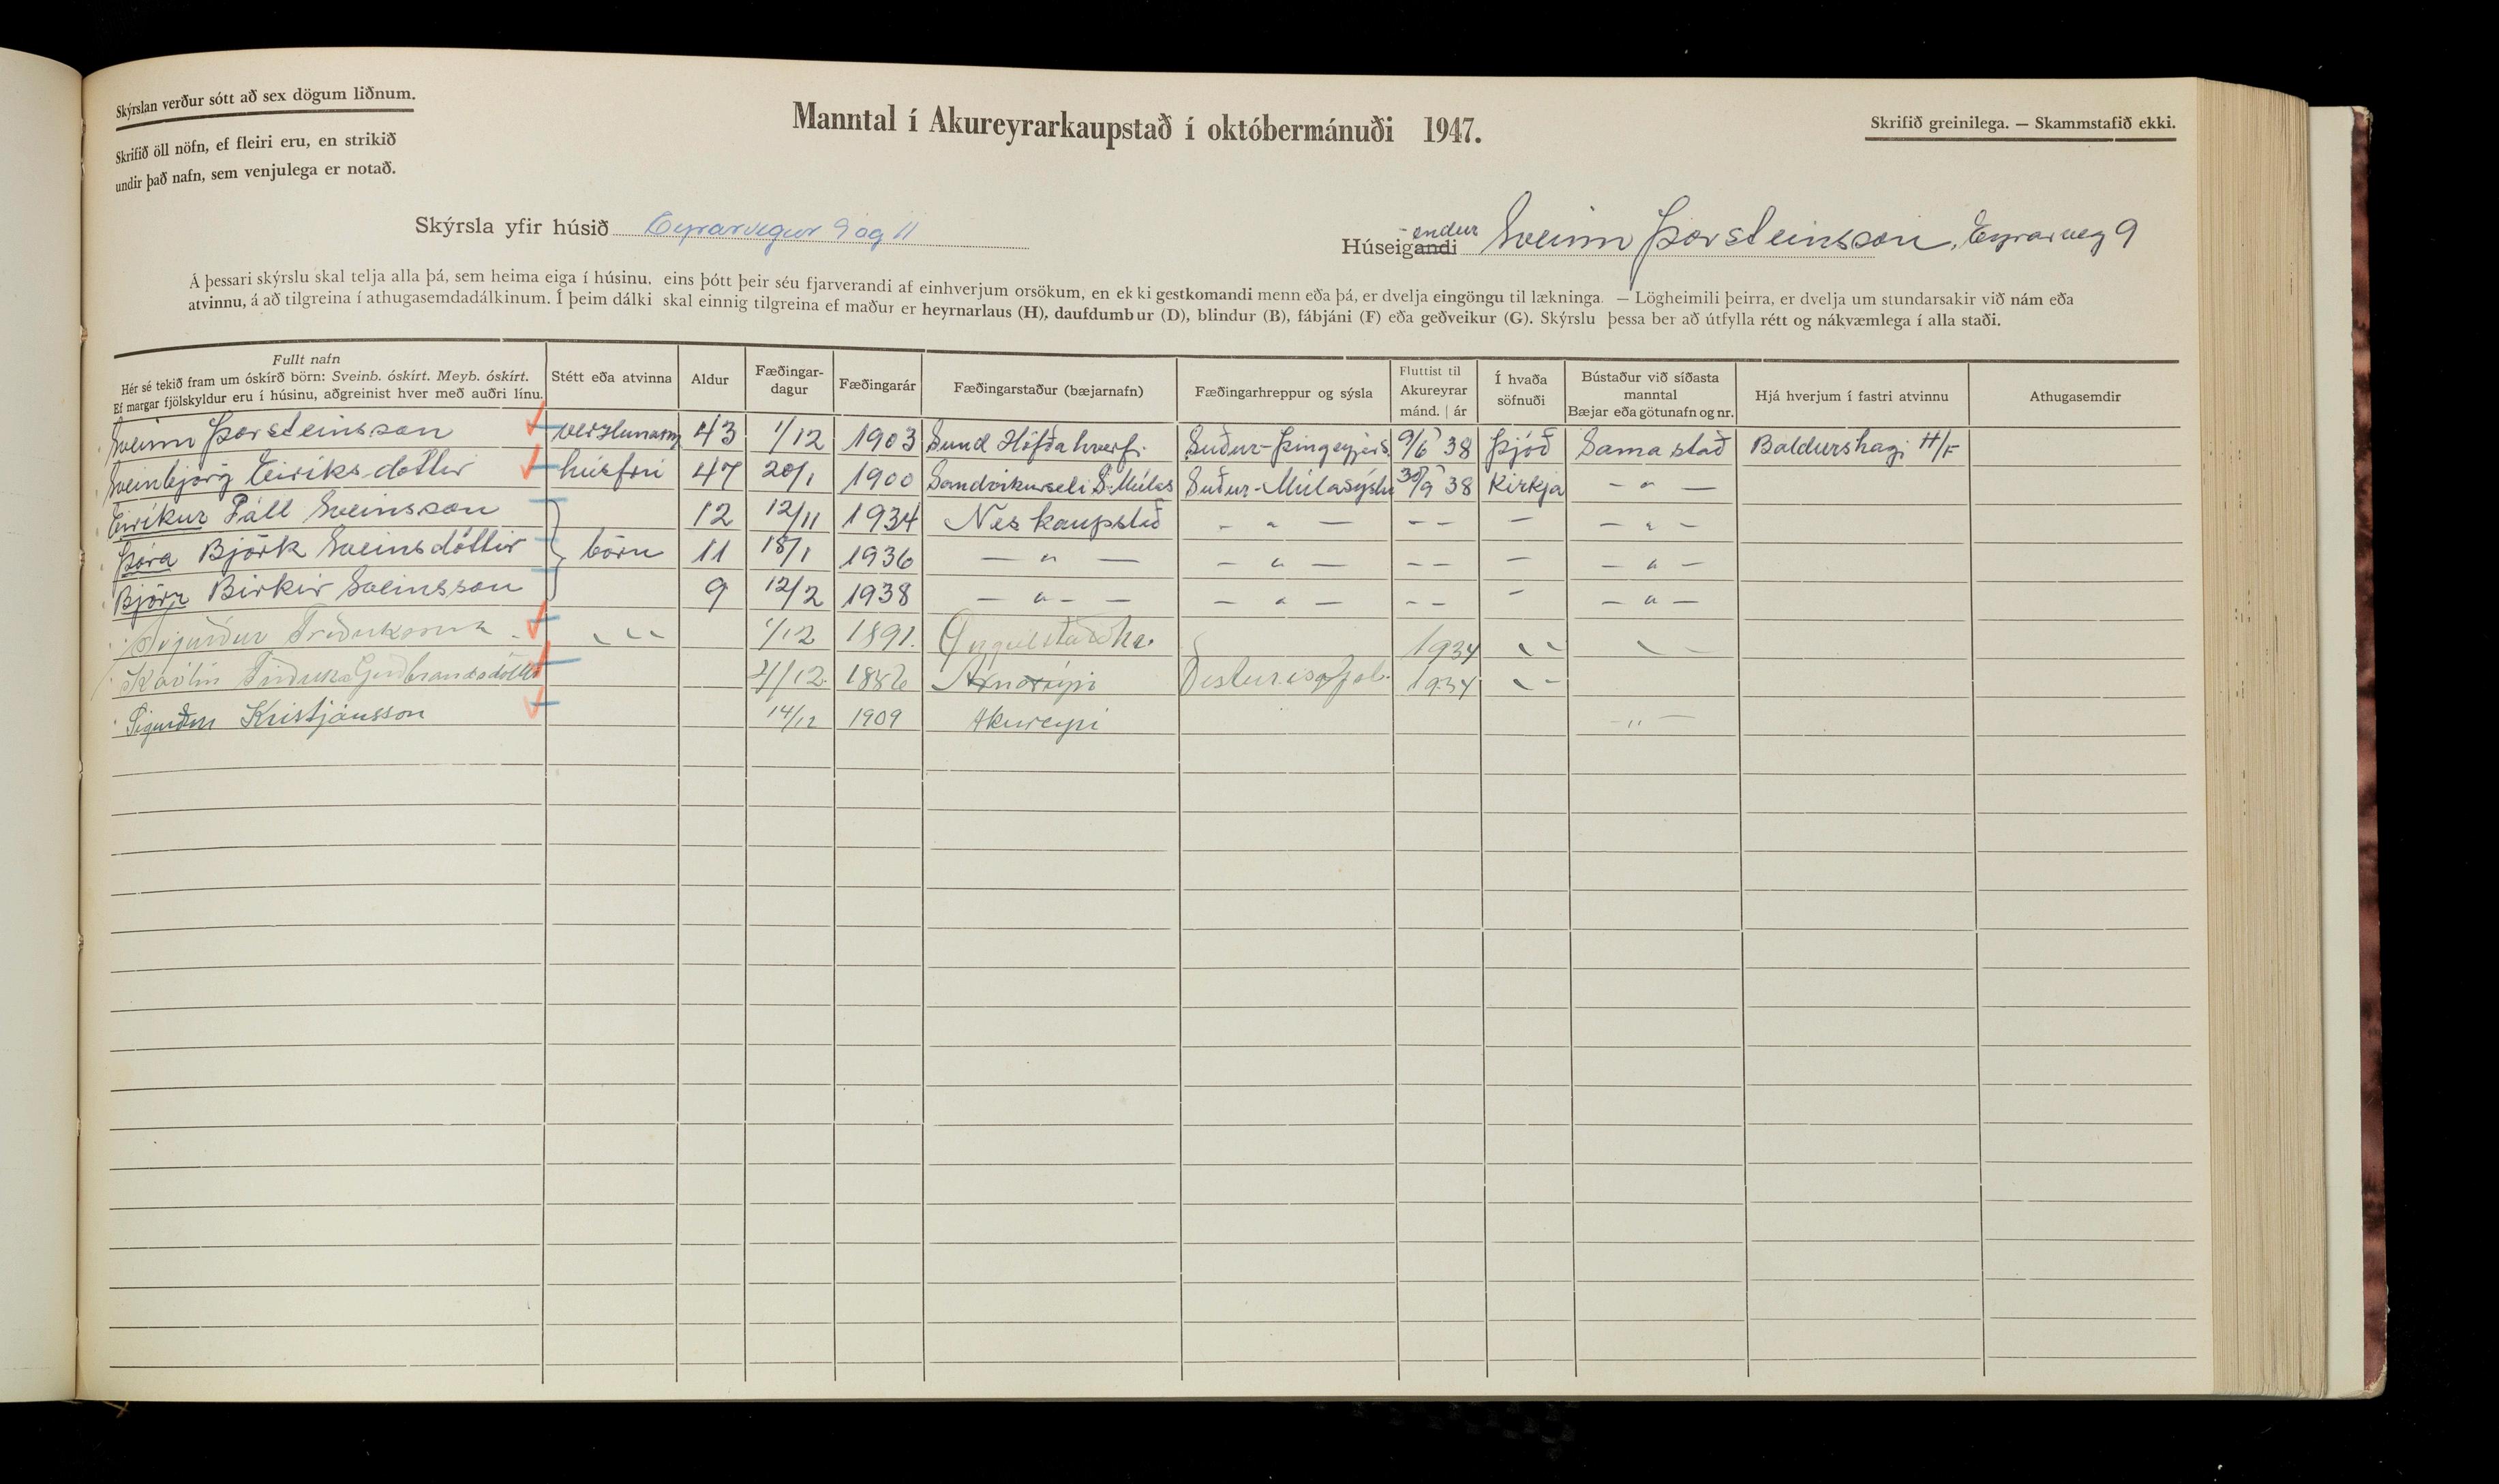 Skýrslan verður sótt að sex dögum liðnum.
Skrifið öll nöfn, ef fleiri eru, en strikið
undir það nafn, sem venjulega er notað.
Manntal í Akureyrarkaupstað í októbermánuði 1947.
Skrifið greinilega. — Skammstafið ekki.
Skýrsla yfir húsið Eyrarvegur 9 og 11
Húseigandi -endur Sveinn Þorsteinsson, Eyrarveg 9
Á þessari skýrslu skal telja alla þá, sem heima eiga í húsinu, eins þótt þeir séu fjarverandi af einhverjum orsökum, en ekki gestkomandi menn eða þá, er dvelja eingöngu til lækninga. — Lögheimili þeirra, er dvelja um stundarsakir við nám eða
atvinnu, á að tilgreina í athugasemdadálkinum. Í þeim dálki skal einnig tilgreina ef maður er heyrnarlaus (H), daufdumbur (D), blindur (B), fábjáni (F) eða geðveikur (G). Skýrslu þessa ber að útfylla rétt og nákvæmlega í alla staði.
Fullt nafn
Hér sé tekið fram um óskírð börn: Sveinb. óskírt. Meyb. óskírt.
Ef margar fjölskyldur eru í húsinu, aðgreinist hver með auðri línu.
Stétt eða atvinna
Aldur
Fæðingar-
dagur
Fæðingarár
Fæðingarstaður (bæjarnafn)
Fæðingarhreppur og sýsla
Fluttist til
Akureyrar
mánd. | ár
Í hvaða
söfnuði
Bústaður við síðasta
manntal
Bæjar eða götunafn og nr.
Hjá hverjum í fastri atvinnu
Athugasemdir
Sveinn Þorsteinsson verzlunarm 43 1/12 1903 Sund Höfðahverfi Suður-Þingeyjars. 9/6 38 Þjóð Sama stað Baldurshagi H/F
Sveinbjörg Eiríksdóttir húsfrú 47 20/1 1900 Sandvíkurseli S-Múlas Suður-Múlasýslu 30/9 38 Kirkja — " —
Eiríkur Páll Sveinsson 12 12/11 1934 Neskaupstað - " — — — — — " —
Þóra Björk Sveinsdóttir börn 11 18/1 1936 — " — — " — — — — — " —
Björn Birkir Sveinsson 9 12/2 1938 — " — — — " — — — — — " —
Sigurður 1/12 1891. 1934
Karólín Guðbrandsdóttir 2/12 1882 1934
Sigurður Kristjánsson 14/12 1909 Akureyri — " —